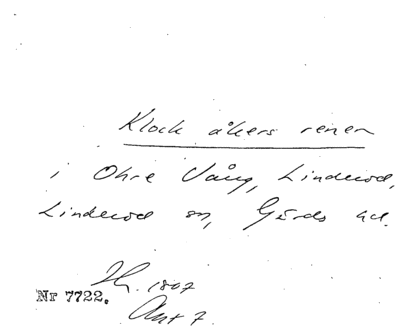 Klock åkers renen
i Öhre Vång, Linderöd,
Linderöd sn, Gärds hd.
Nr 7722.
1807
Akt 7